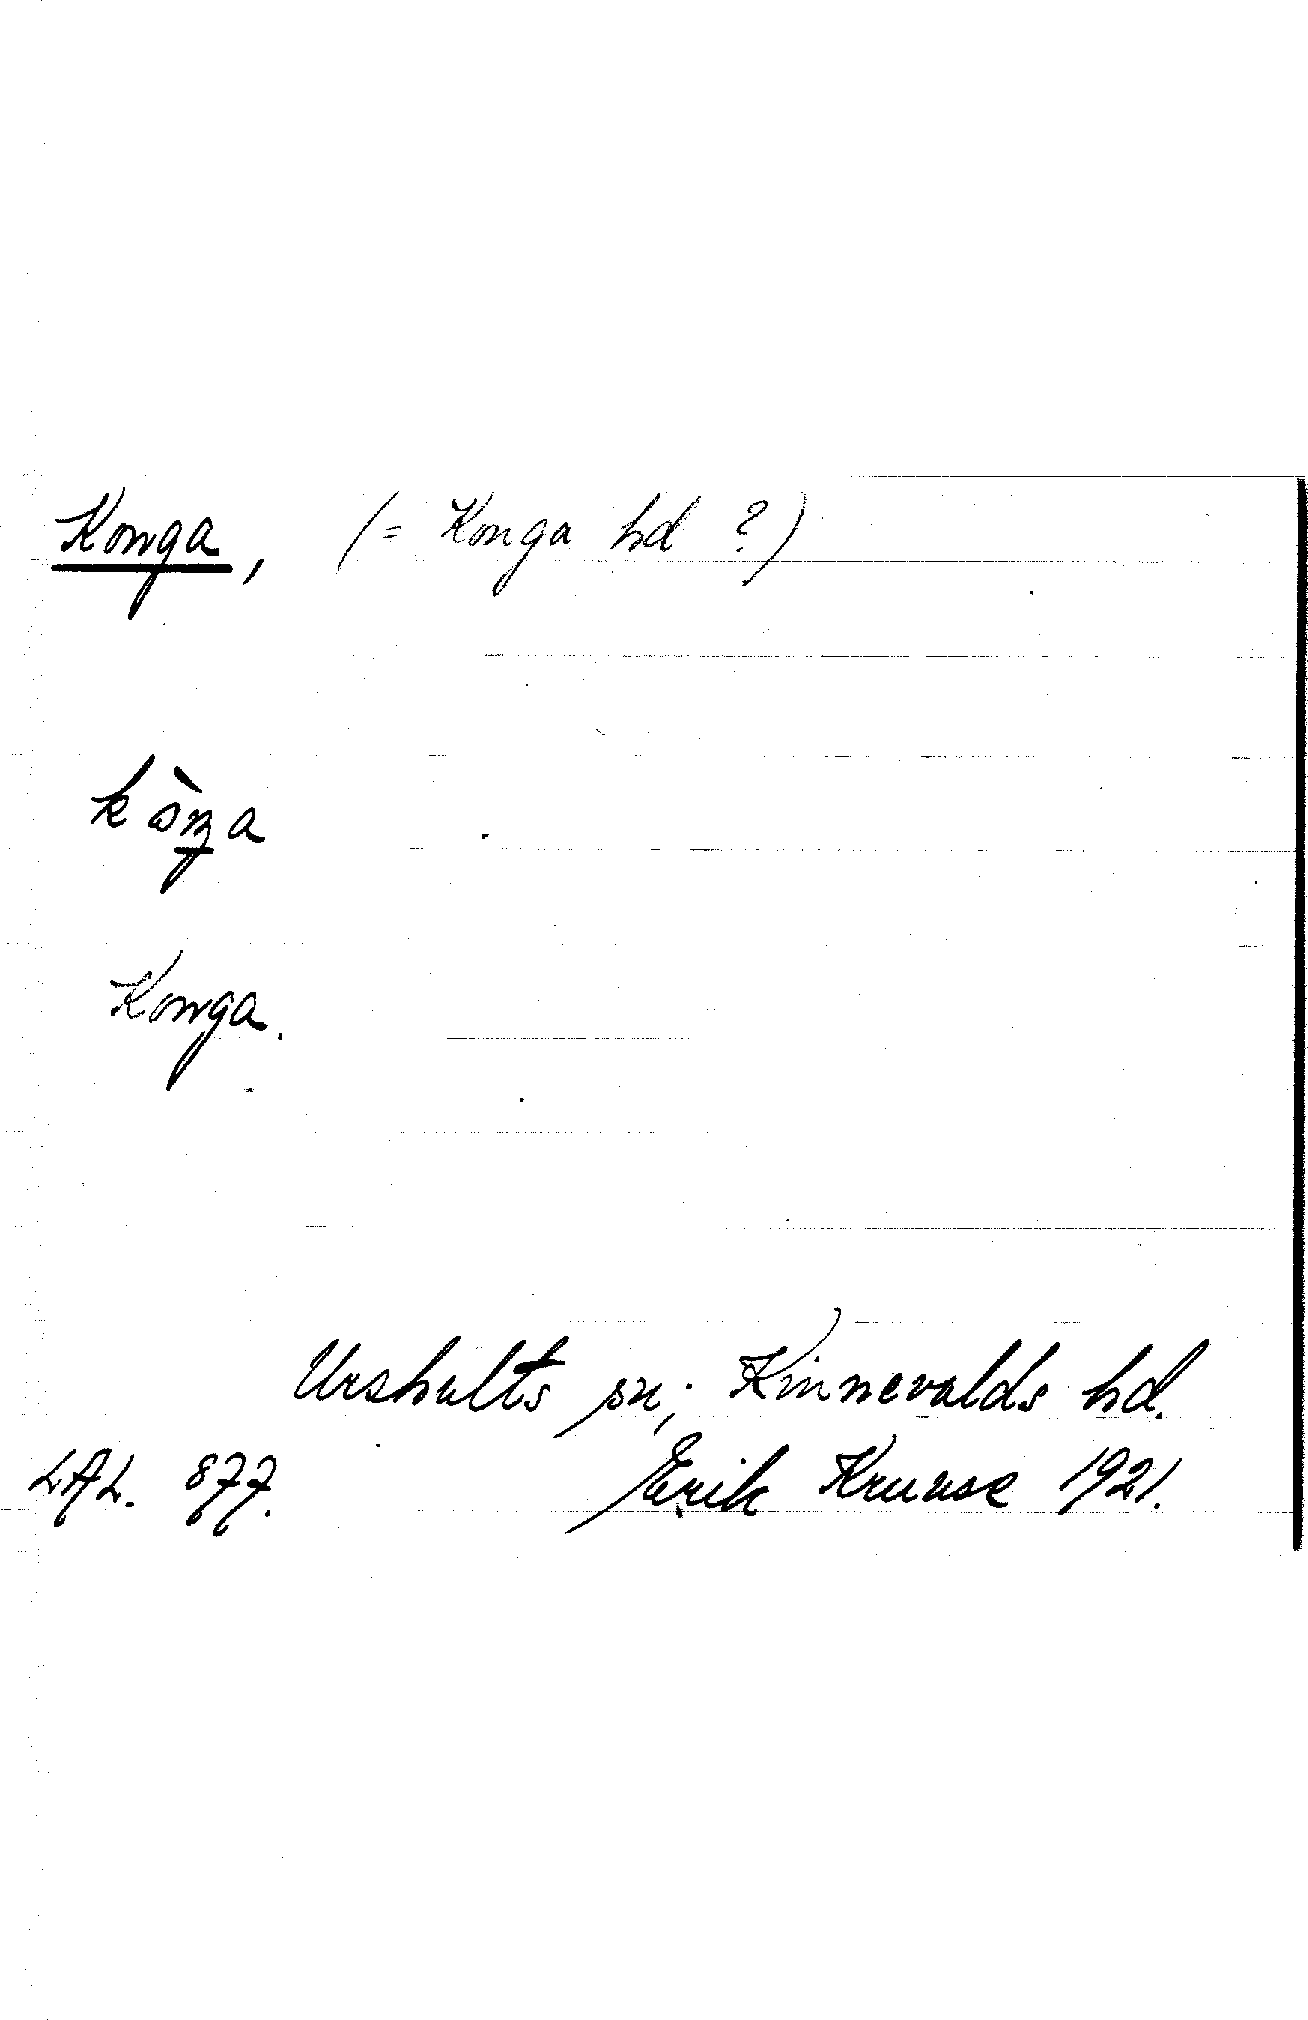 Konga, (= Konga hd ?)
Konga.
Urshults sn; Kinnevalds hd.
LAL. 877. Erik Kruuse 1921.